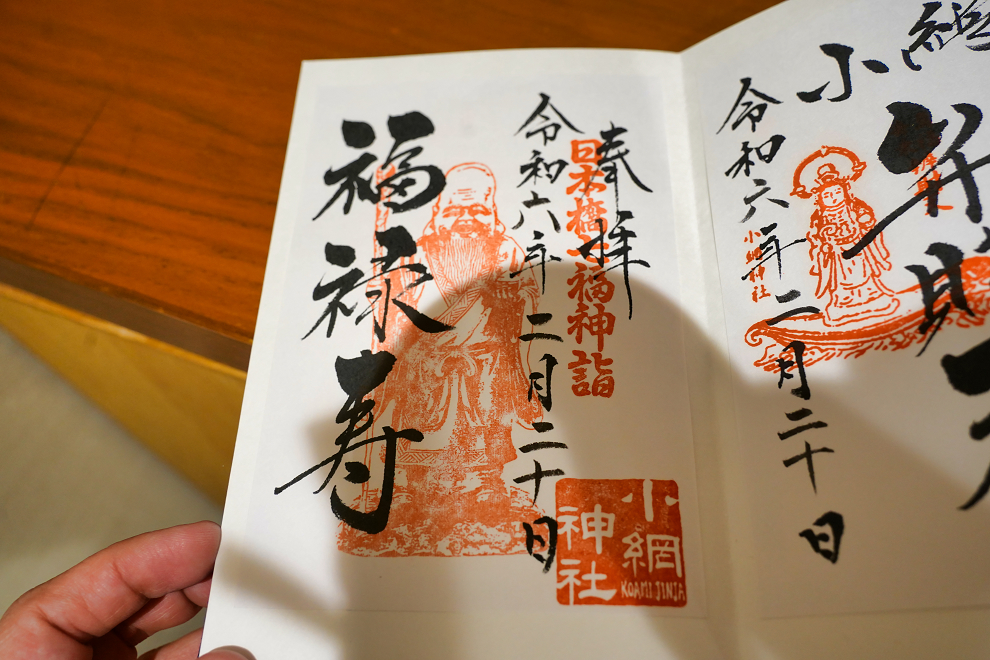 奉拝
日本橋七福神詣
令和六年二月二十日
福禄寿
小網
神社
KOAMI JINJA
小
弁財天
令和六年二月二十日
小網神社